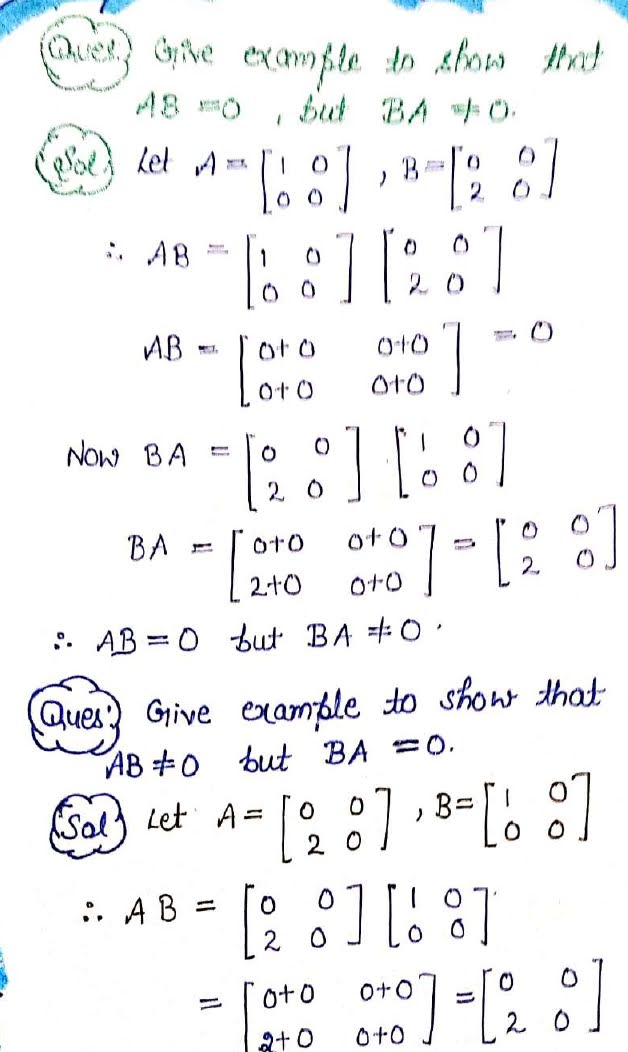 Ques. Give example to show that
AB = 0 , but BA ≠ 0.
Sol Let A = [1 0; 0 0] , B = [0 0; 2 0]
∴ AB = [1 0; 0 0] [0 0; 2 0]
AB = [0+0 0+0; 0+0 0+0] = 0
Now BA = [0 0; 2 0] [1 0; 0 0]
BA = [0+0 0+0; 2+0 0+0] = [0 0; 2 0]
∴ AB = 0 but BA ≠ 0 .
Ques: Give example to show that
AB ≠ 0 but BA = 0.
Sol Let A = [0 0; 2 0] , B = [1 0; 0 0]
∴ AB = [0 0; 2 0] [1 0; 0 0]
= [0+0 0+0; 2+0 0+0] = [0 0; 2 0]